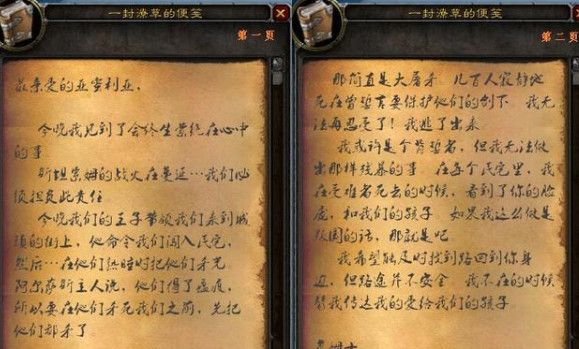 一封潦草的便笺
第一页
最亲爱的亚蜜利亚，
今晚我见到了会终生萦绕在心中
的事
斯坦索姆的战火在蔓延…我们必
须担负此责任
今晚我们的王子带领我们来到城
镇的街上，他命令我们闯入民宅，
然后…在他们熟睡时把他们杀光
阿尔萨斯主人说，他们得了瘟疫，
所以要在他们杀死我们之前，先把
他们都杀了
一封潦草的便笺
第二页
那简直是大屠杀。几百人寂静地
死在曾誓言要保护他们的剑下。我无
法再忍受了！我逃了出来。
我或许是个背誓者，但我无法做
出那样残暴的事。在每个民宅里，我
在受难者死去的时候，看到了你的脸
庞，和我们的孩子。如果我这么做是
叛国的话，那就是吧
我希望能及时找到路回到你身
边，但路途并不安全。我不在的时候
替我传达我的爱给我们的孩子。